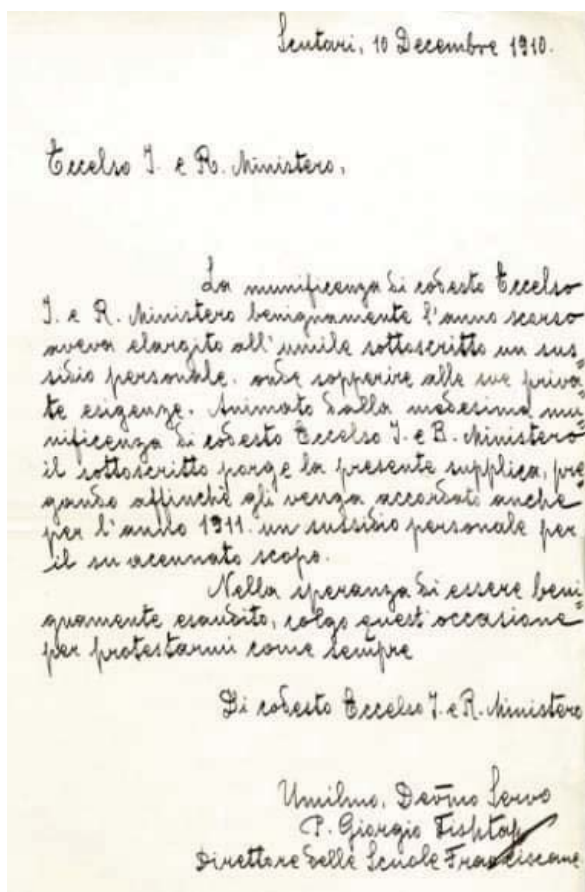 Scutari, 10 Decembre 1910.
Eccelso I. e R. Ministero,
La munificenza di codesto Eccelso
I. e R. Ministero benignamente l'anno scorso
aveva elargito all'umile sottoscritto un sus=
sidio personale, onde sopperire alle sue priva=
te esigenze. Animato dalla medesima mu=
nificenza di codesto Eccelso I. e R. Ministero
il sottoscritto porge la presente supplica, pre
gando affinchè gli venga accordato anche
per l'anno 1911. un sussidio personale per
il su acennato scopo.
Nella speranza di essere beni=
gnamente esaudito, colgo quest'occasione
per protestarmi come sempre
Di codesto Eccelso I. e R. Ministero
Umilmo, Devmo Servo
P. Giorgio Fishta
Direttore delle Scuole Francescane